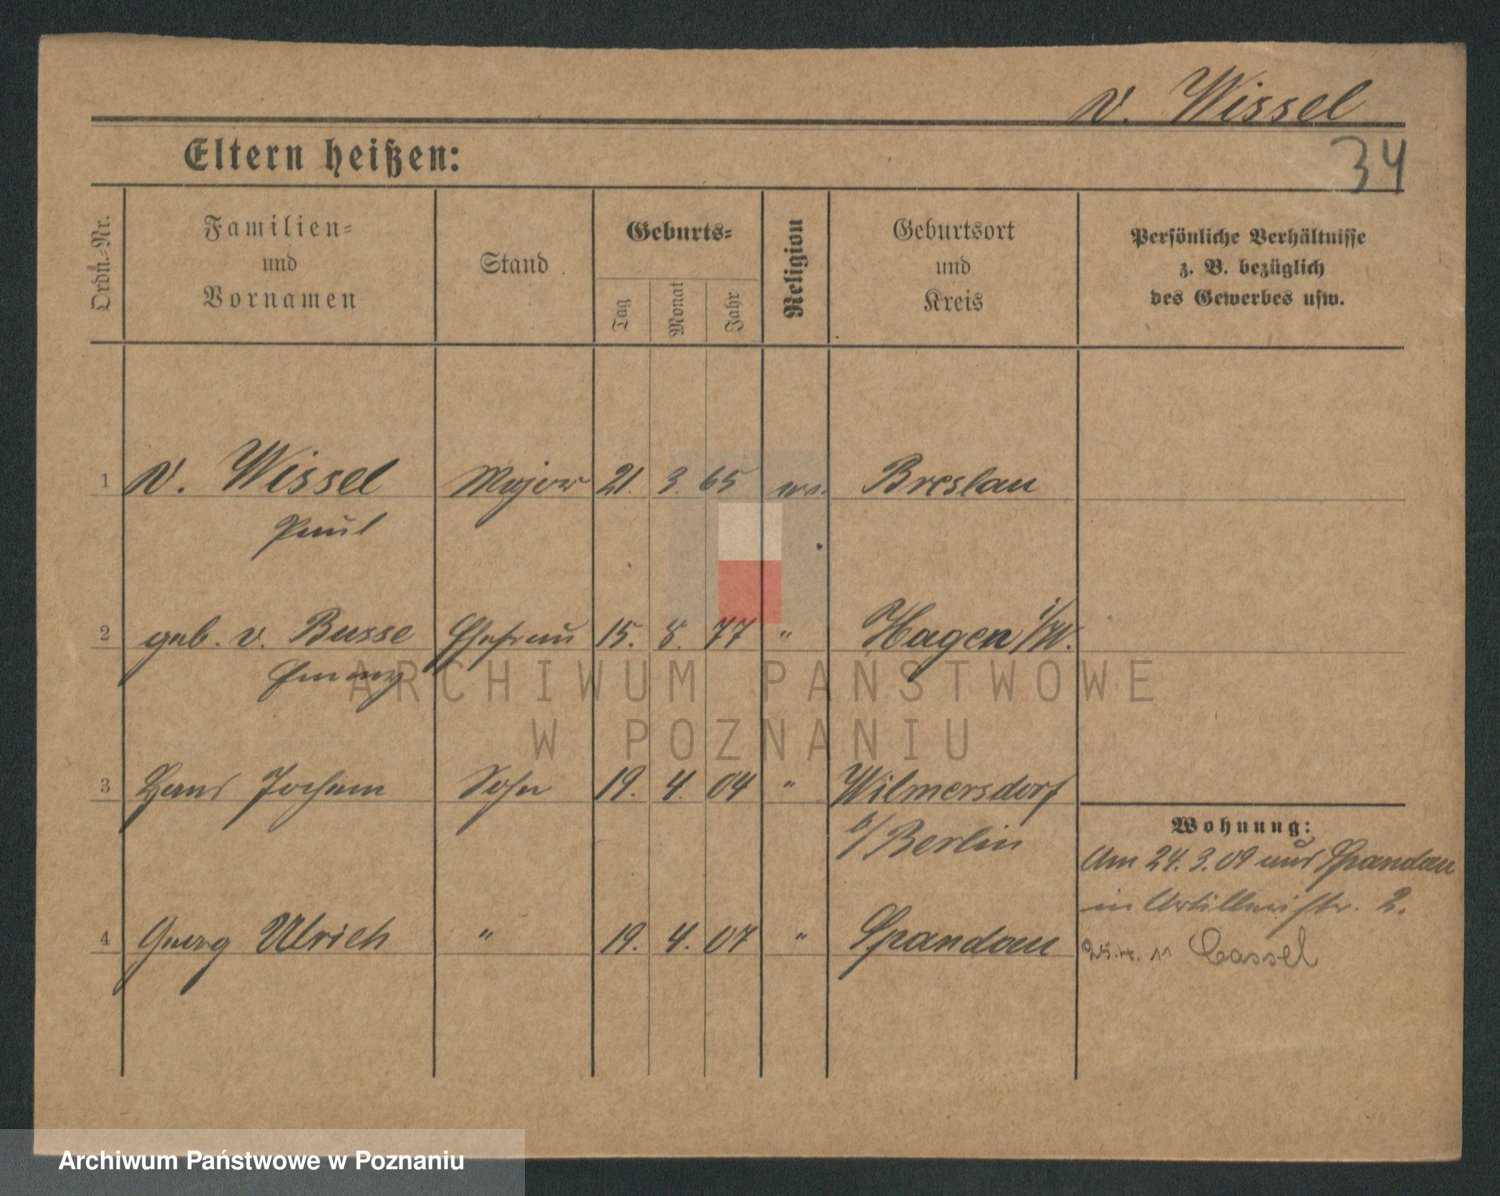 v. Wissel
34
Eltern heißen:
Ordn.-Nr.
Familien-
und
Vornamen
Stand
Geburts-
Tag
Monat
Jahr
Religion
Geburtsort
und
Kreis
Persönliche Verhältnisse
z. B. bezüglich
des Gewerbes usw.
1 v. Wissel Major 21. 3. 65 ev. Breslau
Paul
2 geb. v. Busse Ehefrau 15. 8. 77 " Hagen i/W.
Emmy
3 Hans Jochem Sohn 19. 4. 04 " Wilmersdorf
b/Berlin
Wohnung:
Am 24. 3. 09 aus Spandau
in Artilleriestr. 2.
4 Georg Ulrich " 19. 4. 07 " Spandau
25. 4. 11 Cassel
ARCHIWUM PAŃSTWOWE
W POZNANIU
Archiwum Państwowe w Poznaniu